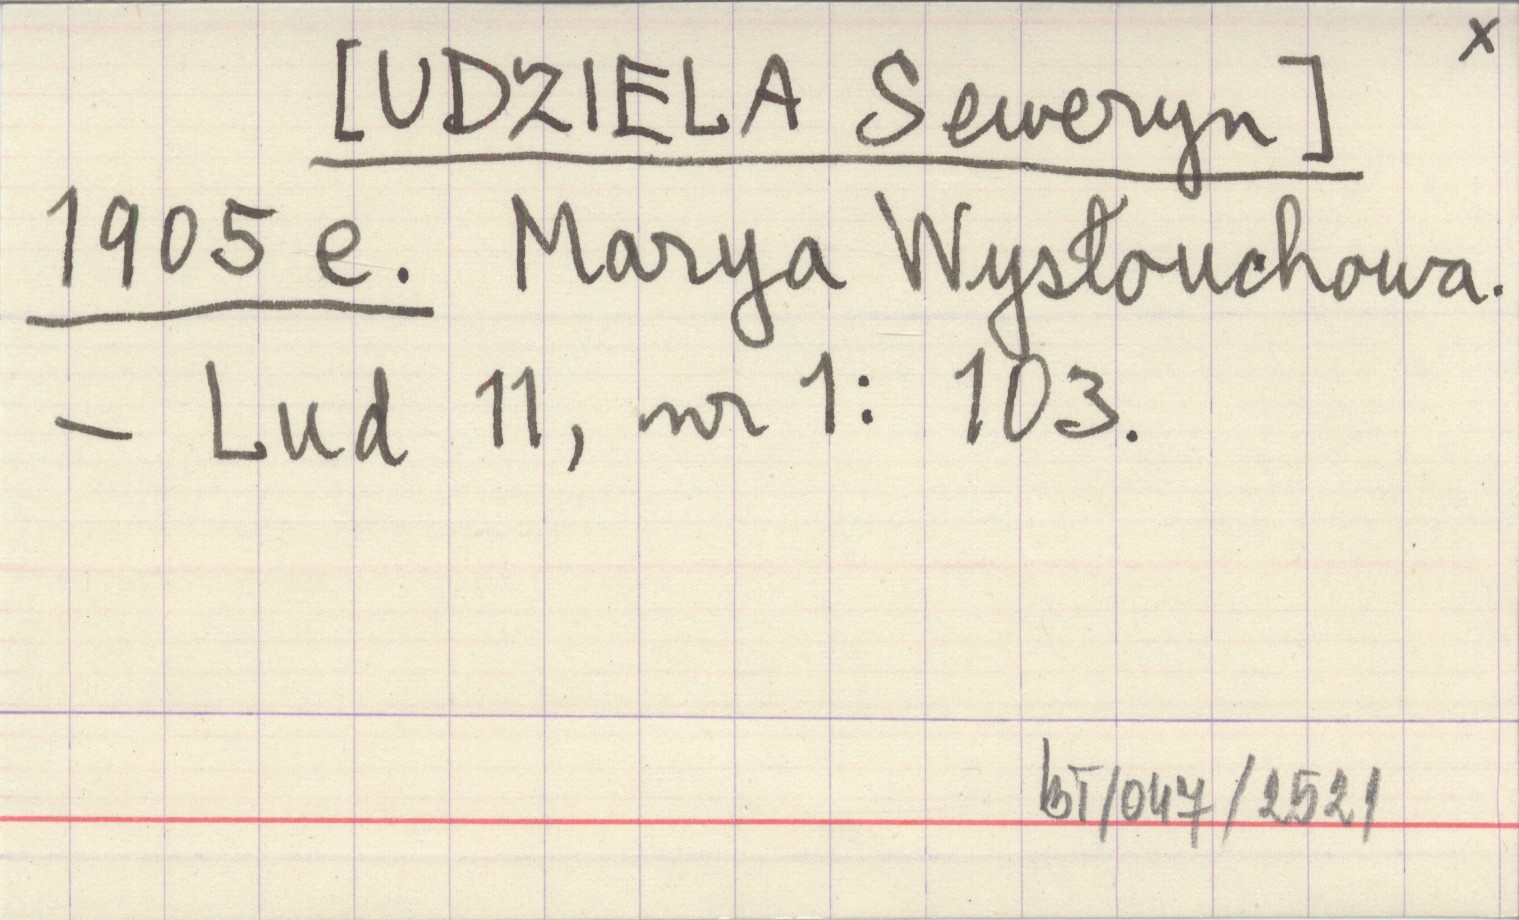 x
[UDZIELA Seweryn]
1905 e. Marya Wysłouchowa.
– Lud 11, nr 1: 103.
BT/047/2521